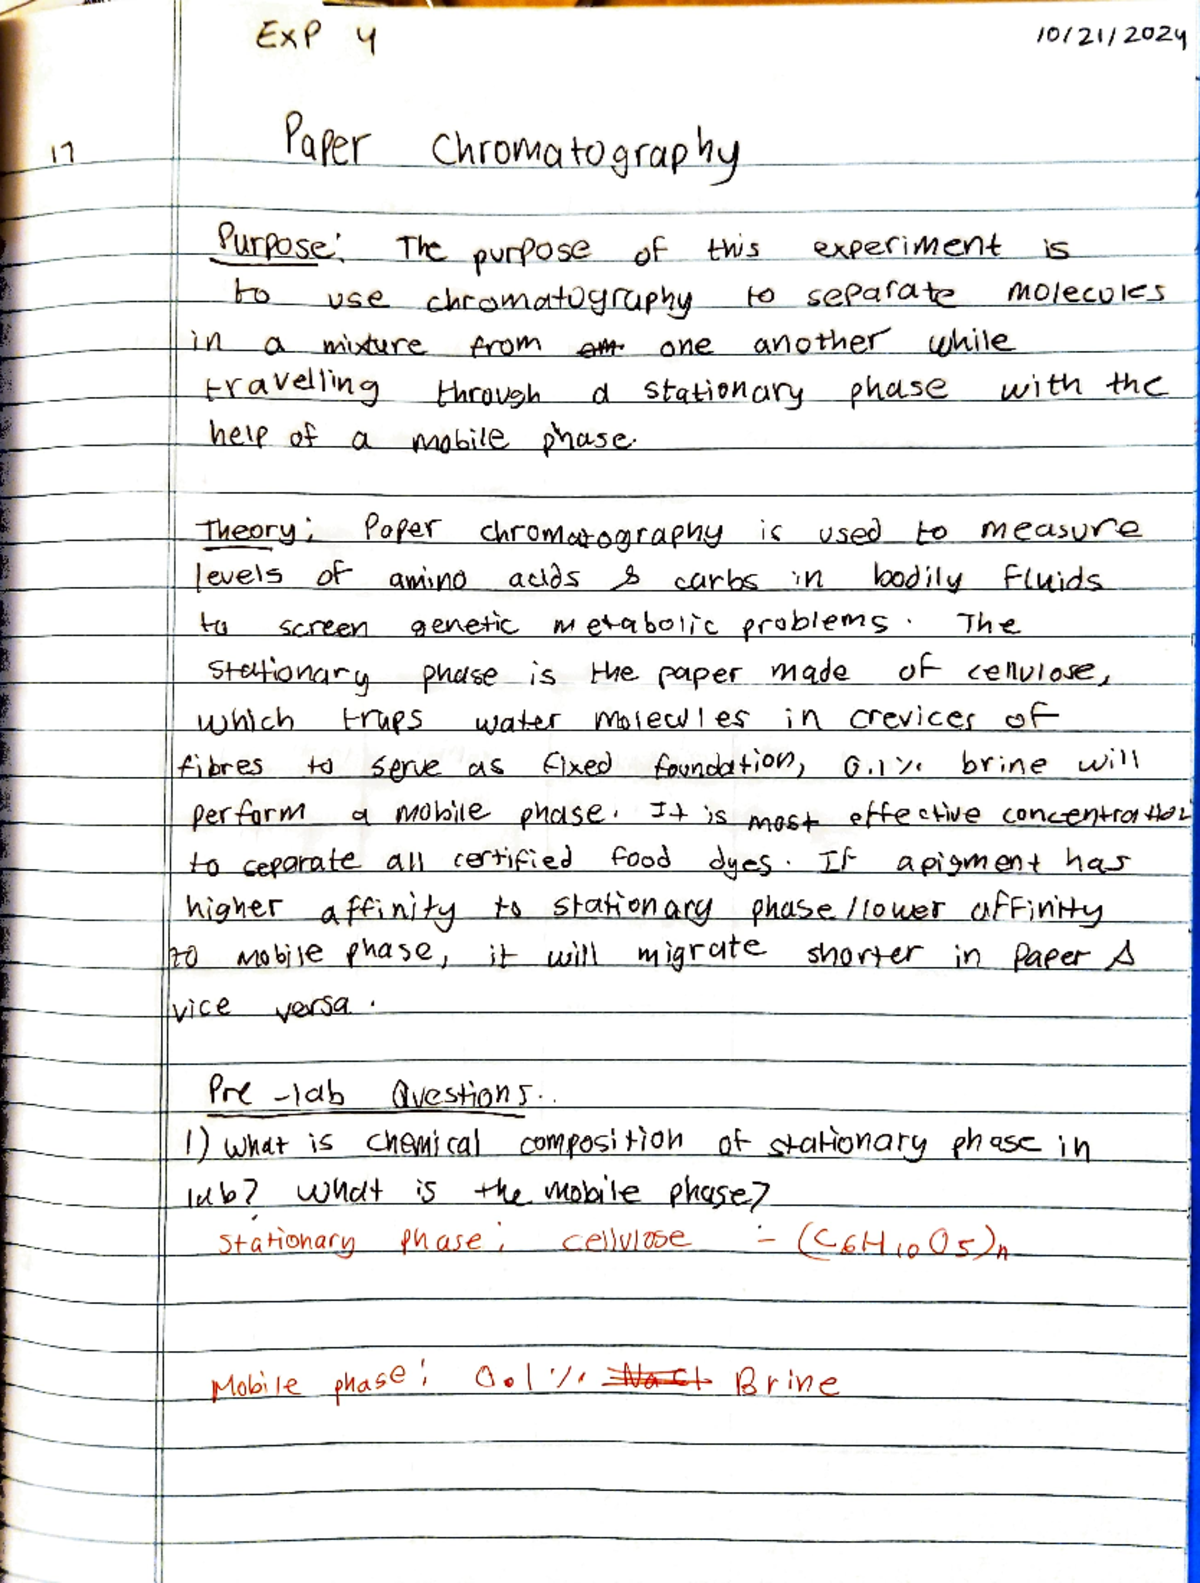 EXP 4
10/21/2024
17
Paper Chromatography
Purpose: The purpose of this experiment is
to use chromatography to separate molecules
in a mixture from one another while
travelling through a stationary phase with the
help of a mobile phase.
Theory: Paper chromatography is used to measure
levels of amino acids & carbs in bodily fluids
to screen genetic metabolic problems. The
stationary phase is the paper made of cellulose,
which traps water molecules in crevices of
fibres to serve as fixed foundation, 0.1% brine will
perform a mobile phase. It is most effective concentration
to separate all certified food dyes. If a pigment has
higher affinity to stationary phase/lower affinity
to mobile phase, it will migrate shorter in paper &
vice versa.
Pre-lab Questions..
1) What is chemical composition of stationary phase in
lab? What is the mobile phase?
Stationary phase: cellulose - (C6H10O5)n
Mobile phase: 0.1% Nact Brine